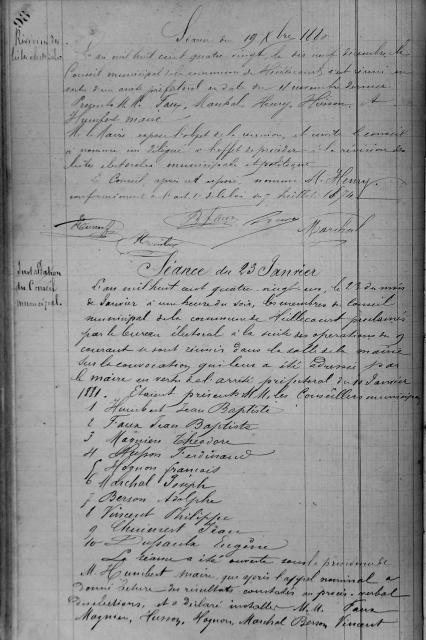 98
Séance du 19 Xbre 1880
Révision des
listes électorales
L'an mil huit cent quatre vingt, le dix neuf décembre, le
Conseil municipal de la commune de Heillecourt s'est réuni en
vertu d'un arrêté préfectoral en date du novembre dernier
Présents MM. Faux, Marchal, Henry, Husson, et
Humbert maire
M. le Maire expose l'objet de la réunion, et invite le conseil
à nommer un délégué à l'effet de procéder à la révision des
listes électorales municipale et politique
Le Conseil, après cet exposé, nomme M. Henry,
conformément à l'art. 1 de la loi du juillet 1874
Marchal
Séance du 23 Janvier
Installation
du Conseil
municipal.
L'an mil huit cent quatre vingt un, le 23 du mois
de Janvier à une heure du soir, les membres du Conseil
municipal de la commune de Heillecourt proclamés
par le bureau électoral à la suite des opérations du 9
courant se sont réunis dans la salle de la mairie
sur la convocation qui leur a été adressée par
le maire en vertu de l'arrêté préfectoral du Janvier
1881. Etaient présents MM. les Conseillers municipaux
1 Humbert Jean Baptiste
2 Faux Jean Baptiste
3 Magnien Théodore
4 Husson Ferdinand
5 Hognon françois
6 Marchal Joseph
7 Berson Adolphe
8 Vincent Philippe
9 Jean
10 Eugène
La séance a été ouverte sous la présidence de
M. Humbert maire, qui après l'appel nominal a
donné lecture des résultats constatés au procès-verbal
des élections, et a déclaré installer MM. Faux
Magnien, Husson, Hognon, Marchal Berson, Vincent